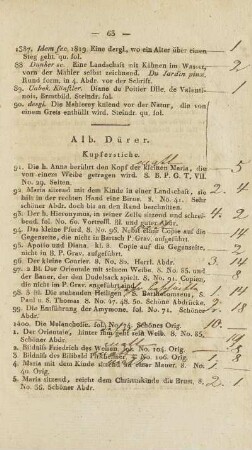 — 65 —
1387. Idem fec. 1819. Eine dergl., wo ein Alter über einen
Steg geht. qu. fol. 1
88. Dunker sc. Eine Landschaft mit Kähnen im Wasser,
vorn der Mahler selbst zeichnend. Du Jardin pinx.
Rund form. in 4. Abdr. vor der Schrift.
89. Unbek. Künstler. Diane de Poitier Dlle. de Valenti-
nois, Brustbild, Steindr. fol.
90. dergl. Die Malerey knieend vor der Natur, die von
einem Greis enthüllt wird. Steindr. qu. fol. 1
Alb. Dürer.
Kupferstiche.
91. Die h. Anna berührt den Kopf der kleinen Maria, die
von einem Weibe getragen wird. 8. B. P. G. T. VII.
No. 29. Selten.
92. Maria sitzend mit dem Kinde in einer Landschaft, sie
hält in der rechten Hand eine Birne. 8. No. 41. Sehr
schöner Abdr. doch bis an den Rand beschnitten.
93. Der h. Hieronymus, in seiner Zelle sitzend und schrei-
bend. fol. No. 60. Vortreffl. Bl. und guter Abdr.
94. Das kleine Pferd, 8. No. 96. Nebst einer Copie auf die
Gegenseite, die nicht in Bartsch P. Grav. angeführt.
95. Apollo und Diana. kl. 8. Copie auf die Gegenseite, die
nicht in B. P. Grav. angeführt.
96. Der kleine Courier. 8. No. 80. Herrl. Abdr. 3. 14
97. 2 Bl. Der Orientale mit seinem Weibe. 8. No. 85. und
der Bauer, der den Dudelsack spielt. 8. No. 91. Copien,
die nicht im P. Grav. angeführt sind.
98. 3 Bl. Die stehenden Heiligen, S. Bartholomäus, S.
Paul u. S. Thomas. 8. No. 47. 48. 50. Schöne Abdrücke.
99. Die Entführung der Amymone. fol. No. 71. Schöner
Abdr.
1400. Die Melancholie. fol. No. 74. Schönes Orig.
1. Der Orientale, hinter ihm geht sein Weib. 8. No. 85.
Schöner Abdr.
2. Bildnifs Friedrich des Weisen. fol. No. 104. Orig.
3. Bildnifs des Bilibald Pirkheimer. fol. No. 106. Orig.
4. Maria mit dem Kinde sitzend an einer Mauer. 8. No.
40. Orig.
5. Maria sitzend, reicht dem Christuskinde die Brust. 8.
No. 36. Schöner Abdr.